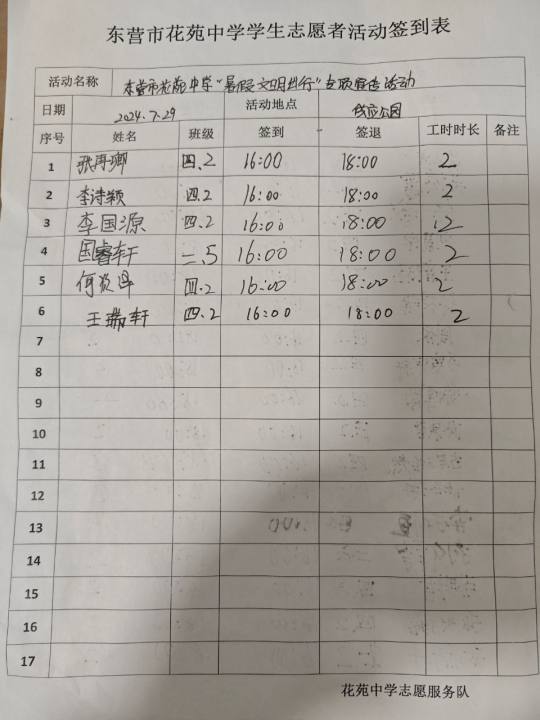 东营市花苑中学学生志愿者活动签到表
活动名称 东营市花苑中学“暑假文明出行”专项宣传活动
日期 2024.7.29 活动地点 公园
序号 姓名 班级 签到 签退 工时时长 备注
1 张再卿 四.2 16:00 18:00 2
2 李诗颖 四.2 16:00 18:00 2
3 李国源 四.2 16:00 18:00 2
4 国睿轩 二.5 16:00 18:00 2
5 何 四.2 16:00 18:00 2
6 王瑞轩 四.2 16:00 18:00 2
7
8
9
10
11
12
13
14
15
16
17
花苑中学志愿服务队